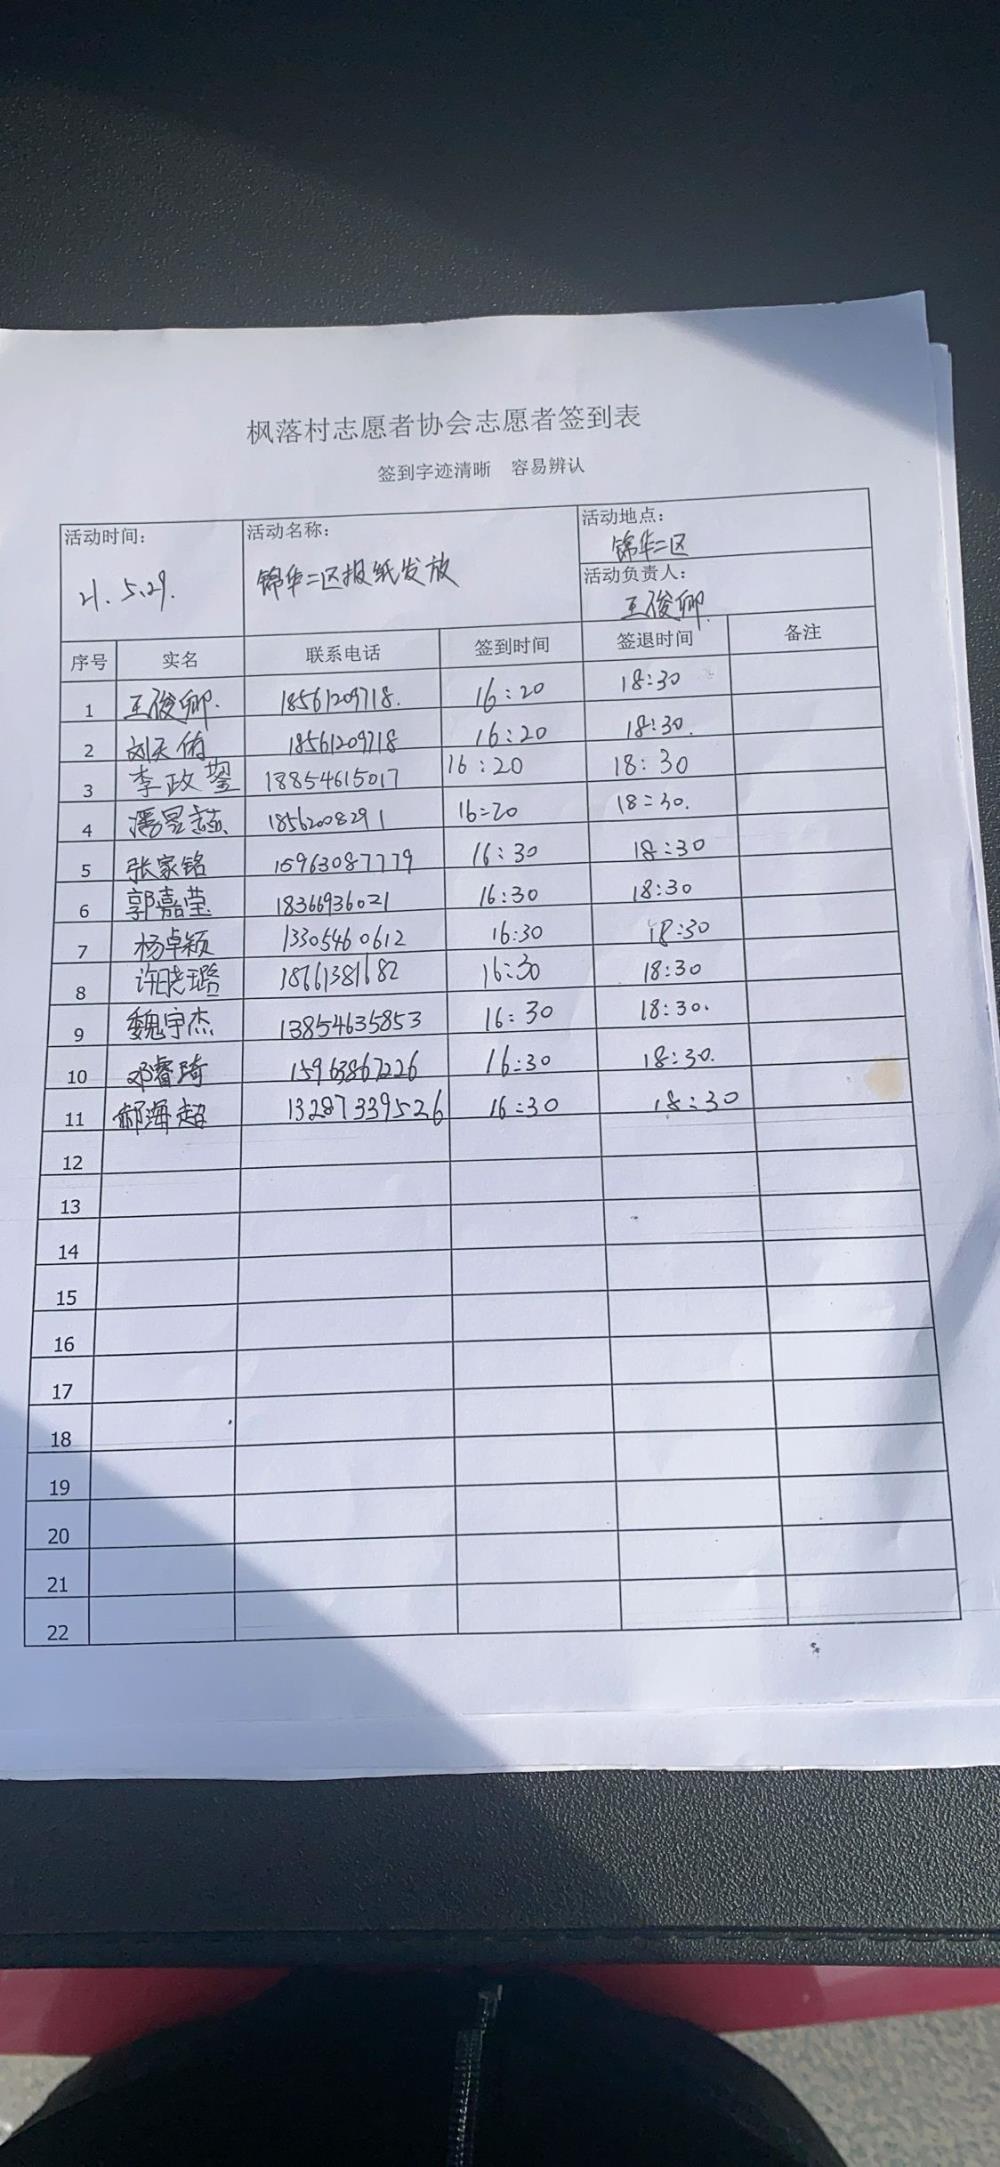 枫落村志愿者协会志愿者签到表
签到字迹清晰 容易辨认
活动时间: 活动名称: 活动地点:
21.5.29. 锦华二区报纸发放 锦华二区
活动负责人:
王俊卿
序号 实名 联系电话 签到时间 签退时间 备注
1 王俊卿. 18561209718. 16:20 18:30
2 刘天佑 18561209718 16:20 18:30.
3 李政 18854615017 16:20 18:30
4 潘昱 18562008291 16:20 18:30.
5 张家铭 15963087779 16:30 18:30
6 郭嘉莹 18366936021 16:30 18:30
7 杨卓颖 13305460612 16:30 18:30
8 许晓璐 18761381682 16:30 18:30
9 魏宇杰 13854635853 16:30 18:30.
10 邓睿琦 15963867226 16:30 18:30.
11 郝海超 13287339526 16:30 18:30
12
13
14
15
16
17
18
19
20
21
22